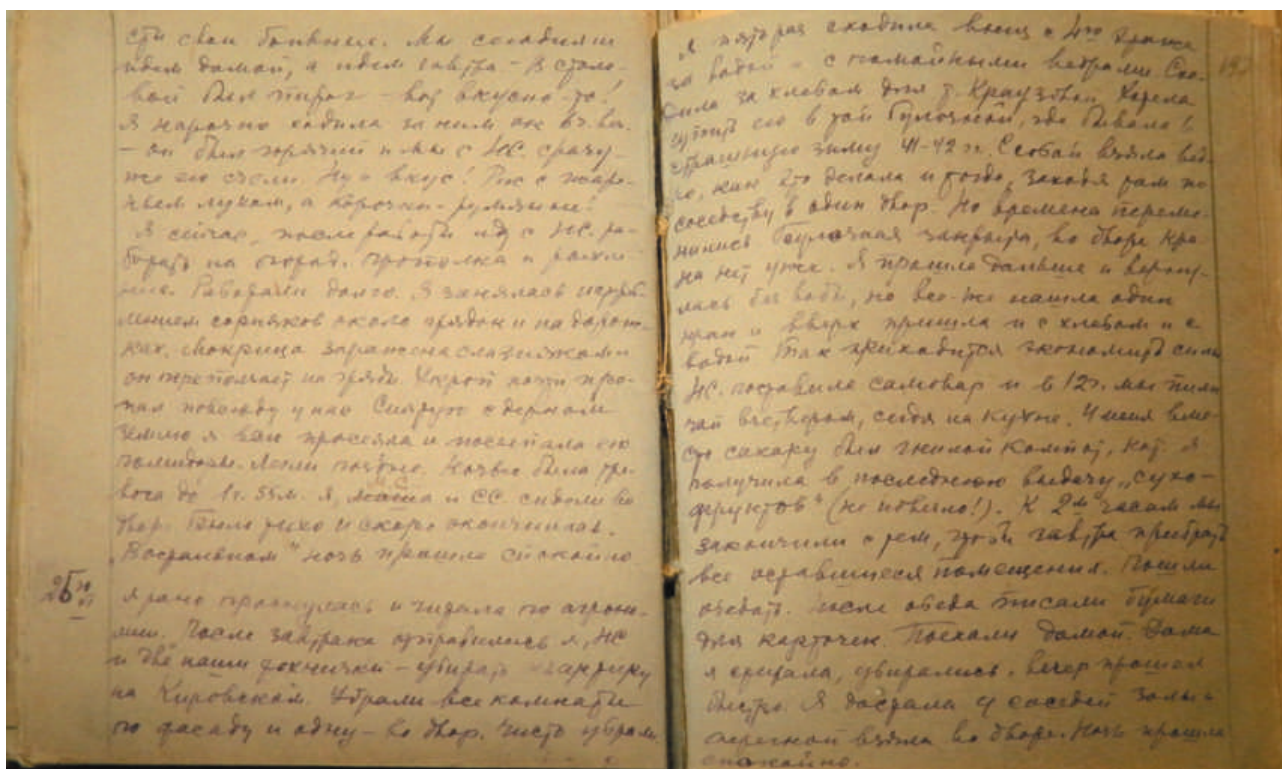 сти свои больные. Мы сегодня не
идем домой, а идем завтра – В столо-
вой был пирог – вот вкусно-то!
Я нарочно ходила за ним,
– он был горячий и мы с НС. сразу-
же его съели. Ну и вкус! Рис с жаре-
ным луком, а корочки – румяные!
Я сейчас, после работы иду с НС. ра-
ботать на огород. Прополка и рыхле-
ние. Работали долго. Я занялась
сорняков около грядок и на дорож-
ках. Мокрица заражена слизняками
он переползает на гряды. Укроп почти про-
пал повсюду у нас с дерном
землю я всю просеяла и посыпала ею
помидоры. Легли поздно. Ночью была тре-
вога до 1 ч. 55 м. Я, Маша и СС. сидели во
дворе. Было тихо и скоро окончилась.
„В остальном“ ночь прошла спокойно
26 Я рано проснулась и читала по агроно-
мии. После завтрака отправились я, НС
и две наши – убирать
на Кировском. Убрали все комнаты
по фасаду и одну – во двор. Чисто убрали.
Я пять раз сходила вниз с 4го этажа
за водой – с помойными ведрами. Схо-
дила за хлебом для т. Краузовой. Хотела
купить его в той булочной, где бывала в
страшную зиму 41–42 гг. С собой взяла вед-
ро, как это делала и тогда, заходя там по
соседству в один двор. Но времена переме-
нились Булочная закрыта, во дворе кра-
на нет уже. Я прошла дальше и верну-
лась без воды, но все-же нашла один
кран и вверх пришла и с хлебом и с
водой Так приходится экономить силы
НС. поставила самовар и в 12 ч. мы пили
чай вчетвером, сидя на кухне. У меня вме-
сто сахару был гнилой компот, кот. я
получила в последнюю выдачу „сухо-
фруктов“ (не повезло!). К 2м часам мы
закончили с тем, чтобы завтра прибрать
все оставшиеся помещения. Пошли
обедать. После обеда писали бумаги
для карточек. Поехали домой. Дома
я стирала, убирались. вечер прошел
быстро. Я достала у соседей золы и
взяла во дворе. Ночь прошла
спокойно.